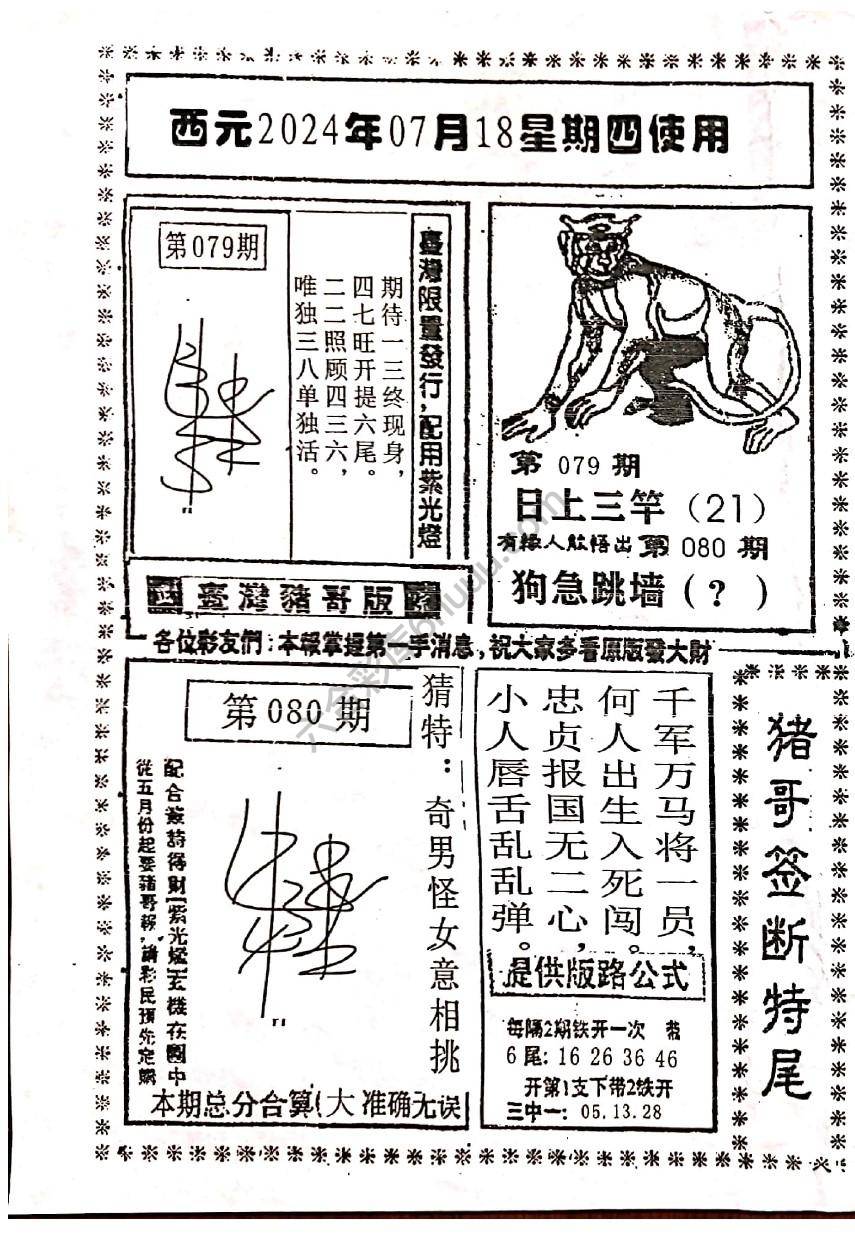 西元2024年07月18星期四使用
第079期
期待一三终现身，
四七旺开提六尾。
二二照顾四三六，
唯独三八单独活。
臺灣限量發行，配用紫光燈
第 079 期
日上三竿（21）
有緣人能悟出第 080 期
狗急跳墙（？）
臺灣豬哥版
各位彩友們：本報掌握第一手消息，祝大家多看原版發大財
第 080 期
猜特：奇男怪女意相挑
配合簽詩得财[紫光燈]玄機在圖中
從五月份起要豬哥報，請彩民預先定購
本期总分合算(大 准确无误
千军万马将一员，
何人出生入死闯。
忠贞报国无二心，
小人唇舌乱乱弹。
提供版路公式
每隔2期铁开一次
6尾：16 26 36 46
开第1支下带2铁开
三中一：05.13.28
猪哥签断特尾
六合彩库6huuu.com